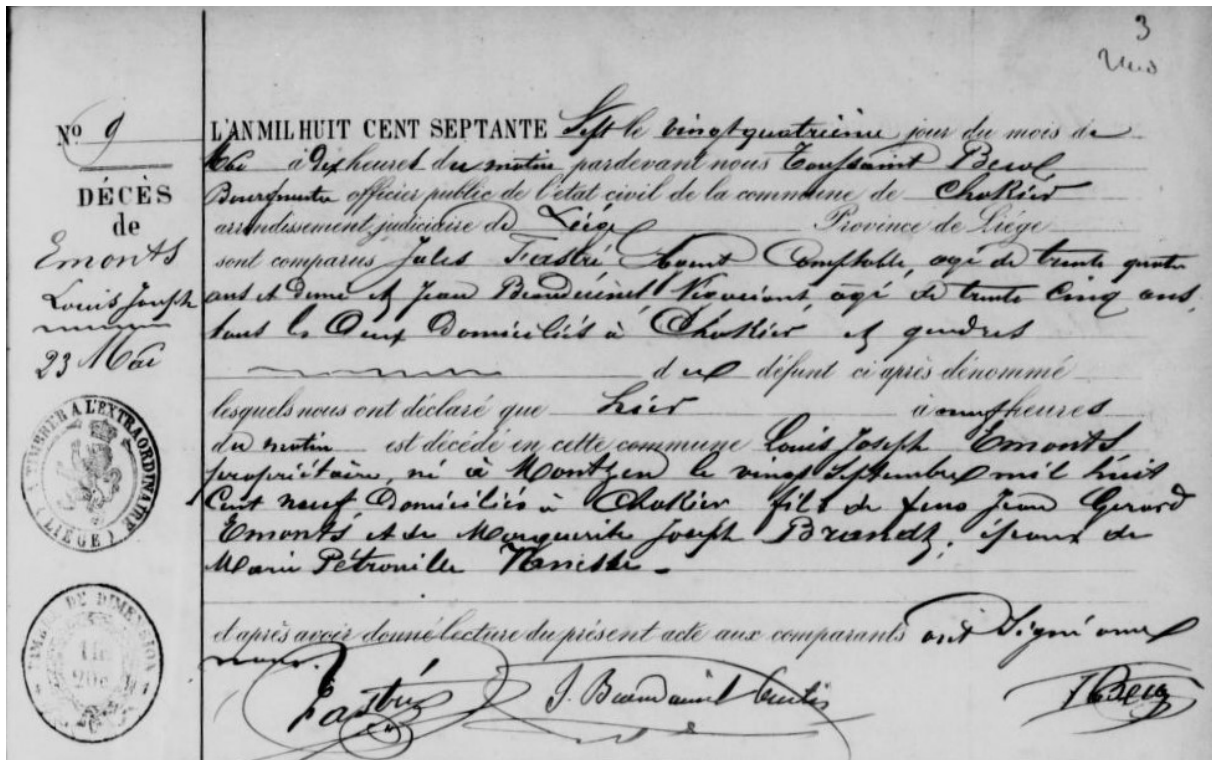 3
No 9
DÉCÈS
de
Emonts
Louis Joseph
23 Mai
A TIMBRER A L'EXTRAORDINAIRE
(LIÈGE)
TIMBRE DE DIMENSION
L'AN MIL HUIT CENT SEPTANTE Sept le vingt quatrième jour du mois de
Mai à dix heures du matin pardevant nous Toussaint
Bourgmestre officier public de l'état civil de la commune de Chokier
arrondissement judiciaire de Liége Province de Liége
sont comparus Jules Fastré Agent Comptable, agé de trente quatre
ans et demi et Jean Negociant, agé de trente Cinq ans,
tous les Deux Domiciliés à Chokier et gendres
du défunt ci après dénommé
lesquels nous ont déclaré que hier à neuf heures
du matin est décédé en cette commune Louis Joseph Emonts
propriétaire, né à Montzen le vingt Septembre mil huit
Cent neuf, Domicilié à Chokier fils de feus Jean Gerard
Emonts et de Marguerite Joseph Brandt, époux de
Marie Pétronille
et après avoir donné lecture du présent acte aux comparants ont Signé avec
nous.
Fastré J.